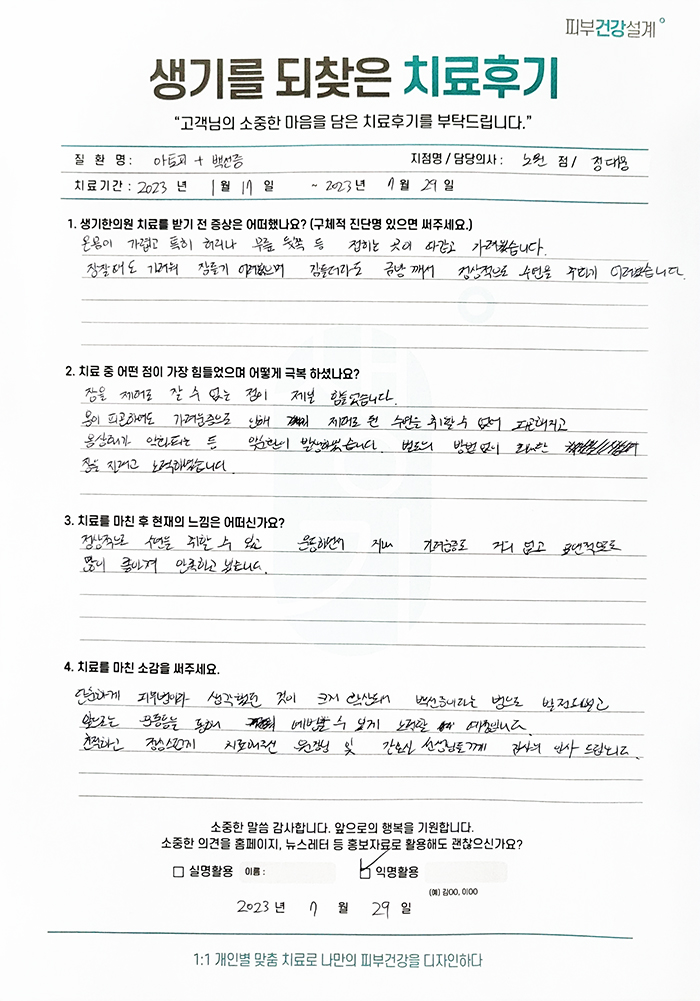 피부건강설계°
생기를 되찾은 치료후기
"고객님의 소중한 마음을 담은 치료후기를 부탁드립니다."
질 환 명 : 아토피 + 백선증 지점명 / 담당의사 : 노원 점 / 정대웅
치료기간 : 2023 년 1 월 17 일 ~ 2023 년 7 월 29 일
1. 생기한의원 치료를 받기 전 증상은 어떠했나요? (구체적 진단명 있으면 써주세요.)
온몸이 가렵고 특히 허리나 무릎 뒷쪽 등 접히는 곳이 따갑고 가려웠습니다.
잠잘때도 가려워 잠들기 어려웠으며 잠들더라도 금방 깨서 정상적으로 수면을 취하기 어려웠습니다.
2. 치료 중 어떤 점이 가장 힘들었으며 어떻게 극복 하셨나요?
잠을 제대로 잘 수 없는 점이 제일 힘들었습니다.
몸이 피곤하여도 가려움증으로 인해 제대로 된 수면을 취할 수 없어 피곤해지고
몸상태가 악화되는 등 악순환이 발생하였습니다. 별도의 방법없이 최대한
잠을 자려고 노력하였습니다.
3. 치료를 마친 후 현재의 느낌은 어떠신가요?
정상적으로 수면을 취할 수 있고 운동하면서 지내 가려움증도 거의 없고 표면적으로도
많이 좋아져 만족하고 있습니다.
4. 치료를 마친 소감을 써주세요.
단순하게 피부병이라 생각했던 것이 크게 확산되어 백선증이라는 병으로 발전되었고
앞으로는 운동등을 통해 예방할 수 있게 노력할 예정입니다.
친절하고 정성스럽게 치료해주신 원장님 및 간호사 선생님들께 감사의 인사 드립니다.
소중한 말씀 감사합니다. 앞으로의 행복을 기원합니다.
소중한 의견을 홈페이지, 뉴스레터 등 홍보자료로 활용해도 괜찮으신가요?
□ 실명활용 이름 : ☑ 익명활용
(예) 김OO, 이OO
2023 년 7 월 29 일
1:1 개인별 맞춤 치료로 나만의 피부건강을 디자인하다